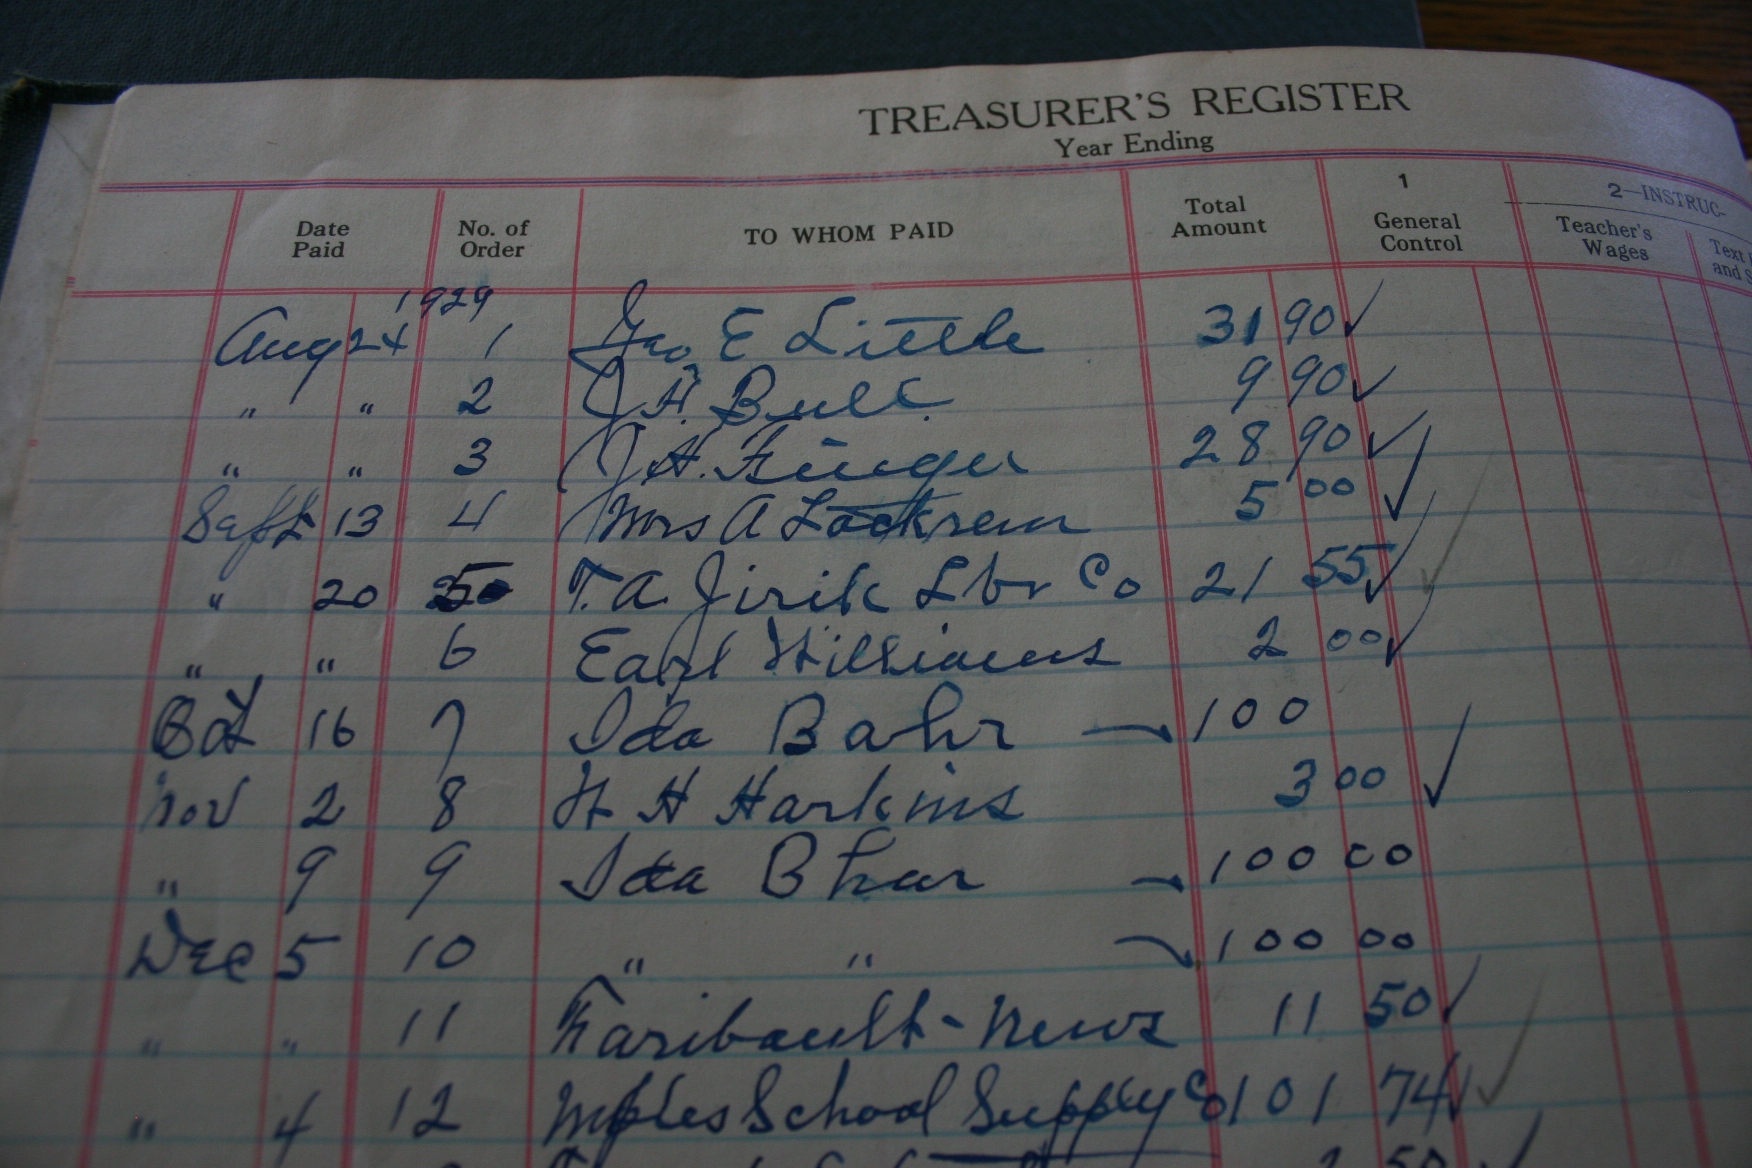 TREASURER'S REGISTER
Year Ending
Date Paid No. of Order TO WHOM PAID Total Amount 1 General Control 2—INSTRUC- Teacher's Wages Text and S
1929
Aug 24 1 Geo E Little 31 90 ✓
" " 2 J H. Bull 9 90 ✓
" " 3 J H. Finger 28 90 ✓
Sept 13 4 Mrs A Lockrem 5 00 ✓
" 20 5 T. A. Jirik Lbr Co 21 55 ✓
" " 6 Earl Williams 2 00 ✓
Oct 16 7 Ida Bahr 100
Nov 2 8 H H Harkins 3 00 ✓
" 9 9 Ida Bhar 100 00
Dec 5 10 " " 100 00
" " 11 Faribault - News 11 50 ✓
" 4 12 Mpls School Supply Co 101 74 ✓
50 ✓